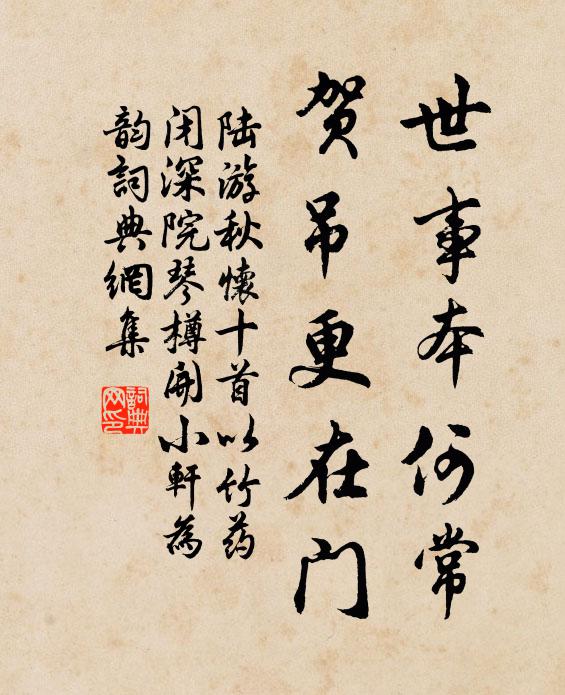 世事本何常
贺吊更在门
陆游秋懷十首以竹药
闭深院琴樽開小軒為
韵詞典網集
詞典网印